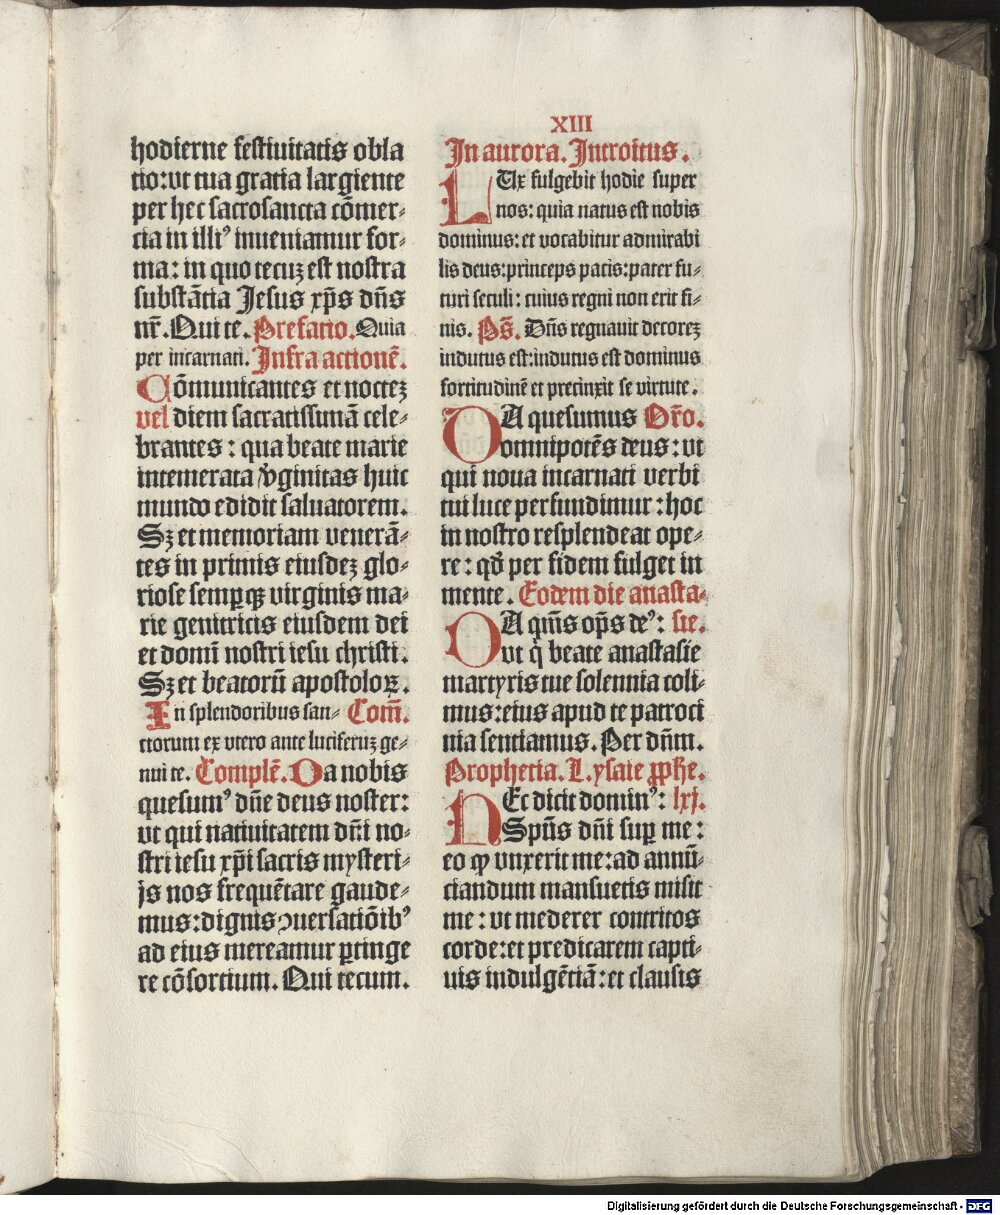 XIII
hodierne festiuitatis obla
tio: vt tua gratia largiente
per hec sacrosancta cōmer⸗
cia in illiꝰ inueniamur for⸗
ma: in quo tecuꝫ est nostra
substātia Jesus xp̄s dn̄s
nr̄. Qui te. Prefatio. Quia
per incarnati. Infra actionē.
Cōmunicantes et nocteꝫ
vel diem sacratissimā cele⸗
brantes: qua beate marie
intemerata v̓ginitas huic
mundo edidit saluatorem.
Sꝫ et memoriam venerā⸗
tes in primis eiusdeꝫ glo⸗
riose semꝑqꝫ virginis ma⸗
rie genitricis eiusdem dei
et domī nostri iesu christi.
Sꝫ et beatorū apostoloꝝ.
In splendoribus san⸗ Com̄.
ctorum ex vtero ante luciferuꝫ ge⸗
nui te. Complē. Da nobis
quesumꝰ dn̄e deus noster:
vt qui natiuitatem dn̄i no⸗
stri iesu xp̄i sacris mysteri⸗
js nos frequētare gaude⸗
mus: dignis ꝯuersatiōibꝰ
ad eius mereamur ꝑtinge
re cōsortium. Qui tecum.
In aurora. Introitus.
LUx fulgebit hodie super
nos: quia natus est nobis
dominus: et vocabitur admirabi
lis deus: princeps pacis: pater fu⸗
turi seculi: cuius regni non erit fi⸗
nis. Ps̄. Dn̄s regnauit decoreꝫ
indutus est: indutus est dominus
fortitudinē et precinxit se virtute.
DA quesumus Or̄o.
omnipotēs deus: vt
qui noua incarnati verbi
tui luce perfundimur: hoc
in nostro resplendeat ope⸗
re: qd̄ per fidem fulget in
mente. Eodem die anasta⸗
DA qm̄s op̄s deꝰ: sie.
vt q̇ beate anastasie
martyris tue solennia coli⸗
mus: eius apud te patroci
nia sentiamus. Per dn̄m.
Prophetia. L. ysaie ꝓphe.
HEc dicit dominꝰ: lxj.
Spūs dn̄i suꝑ me:
eo ꝙ vnxerit me: ad annū⸗
ciandum mansuetis misit
me: vt mederer contritos
corde: et predicarem capti⸗
uis indulgētiā: et clausis
Digitalisierung gefördert durch die Deutsche Forschungsgemeinschaft - DFG